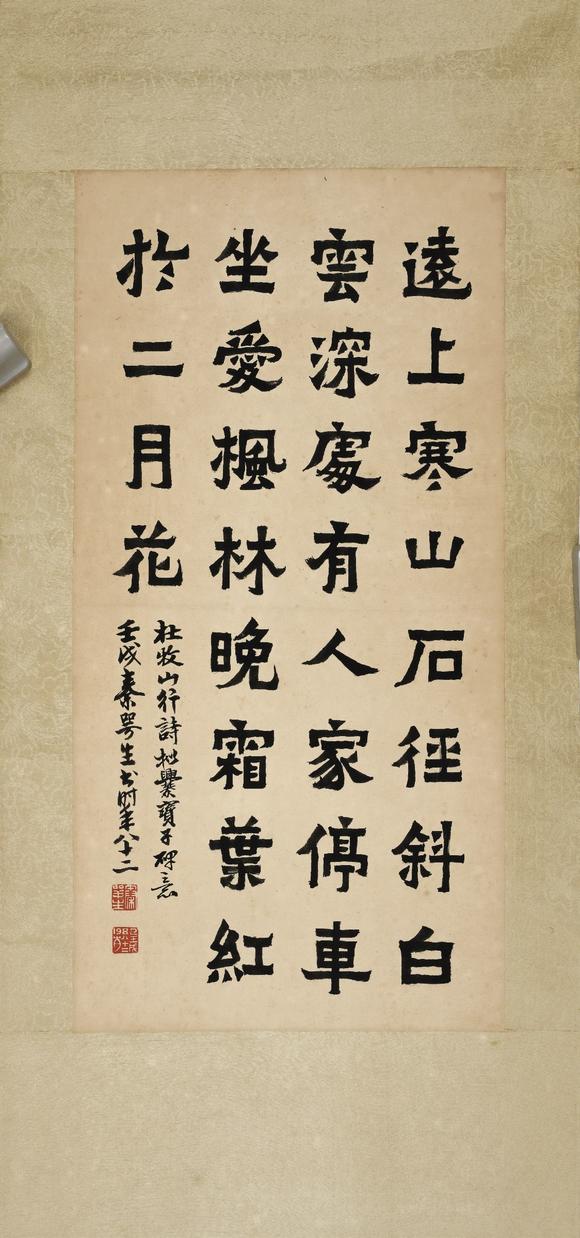 遠上寒山石徑斜白
雲深處有人家停車
坐愛楓林晚霜葉紅
於二月花
杜牧山行詩拟爨寶子碑意
壬戌秦咢生书时年八十二
秦咢生